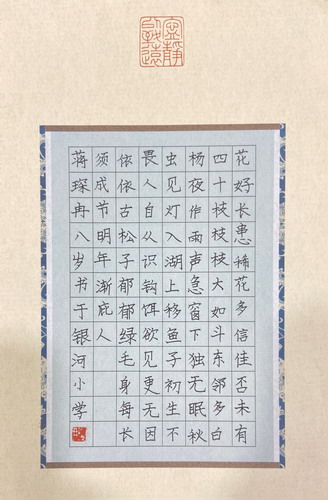 寧靜
致遠
花好长患稀花多信佳否未有
四十枝枝枝大如斗东邻多白
杨夜作雨声急窗下独无眠秋
虫见灯入湖上移鱼子初生不
畏人自从识钩饵欲见更无因
依依古松子郁郁绿毛身每长
须成节明年渐庇人
蒋琛冉八岁书于银河小学